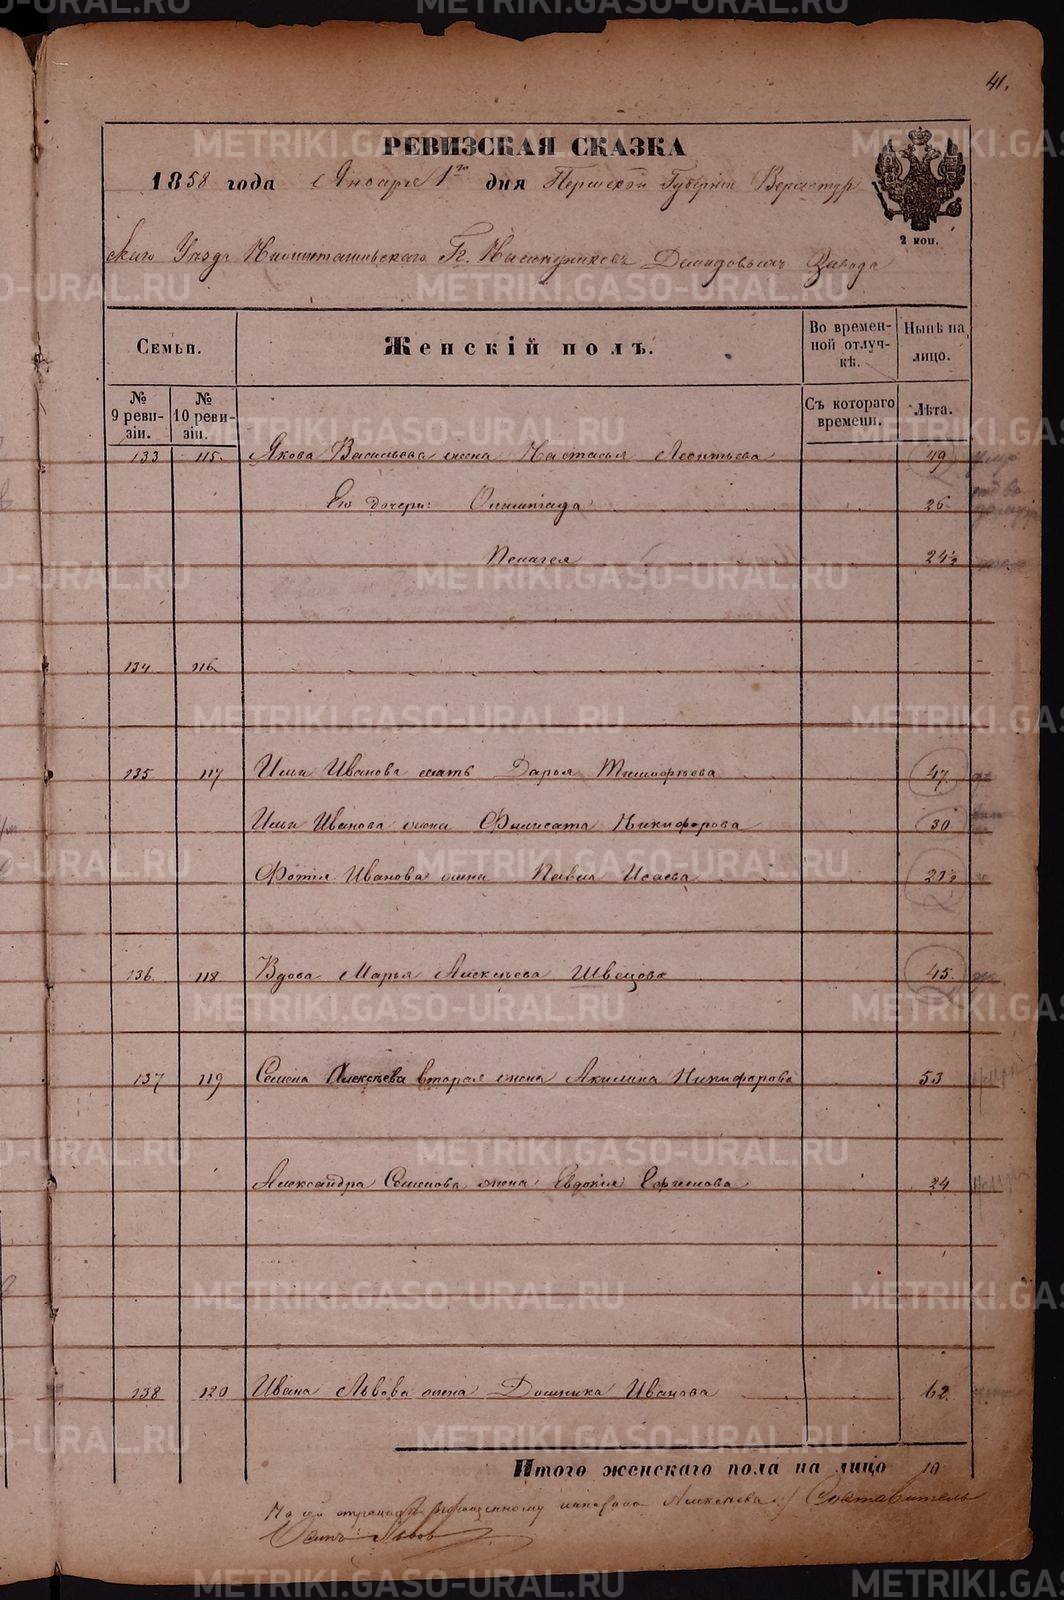 41.
РЕВИЗСКАЯ СКАЗКА
1858 года Января 1го дня Пермской Губернiи Верхотур
скаго Уѣзда Нижнетагильскаго Гг. Наслѣдниковъ Демидовыхъ Завода
2 коп.
Семьи. Женскiй полъ. Во времен- Нынѣ на
ной отлуч- лицо.
кѣ.
№ № Съ котораго Лѣта.
9 реви- 10 реви- времени.
зiи. зiи.
133 115. Якова Васильева жена Настасья Леонтьева 49
Его дочери: Олимпiада 26
Пелагея 24½
134 116
135 117 Ильи Иванова мать Дарья Тимофѣева 47.
Ильи Иванова жена Филисата Никифорова 30
Фотiя Иванова жена Павла Исаева 21½
136 118 Вдова Марья Алексѣева Швецова 45.
137 119 Семена Алексѣева вторая жена Акилина Никифорова 53
Александра Семенова жена Евдокiя Ефимова 24
138 120 Ивана Львова жена Домника Иванова 62.
Итого женскаго пола на лицо 10
На сей страницѣ по Алексѣева Составитель
Осипъ Львов
METRIKI.GASO-URAL.RU